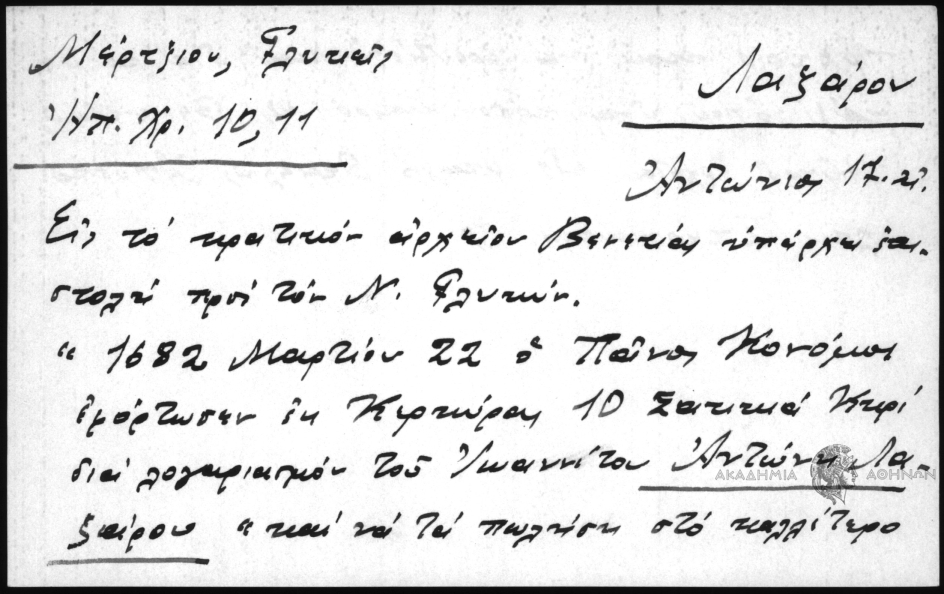 Μέρτζιου, Γλυκεῖς
Λαζάρου
Ἠπ. Χρ. 10, 11
Ἀντώνιος 17. αἰ.
Εἰς τό κρατικόν ἀρχεῖον Βενετίας ὑπάρχει ἐπι-
στολή πρός τόν Ν. Γλυκύν.
" 1682 Μαρτίου 22 ὁ Πάνος Κονόμος
ἐφόρτωσεν ἐκ Κερκύρας 10 σακκιά κερί
διά λογαριασμόν τοῦ Ἰωαννίτου Ἀντώνη Λα-
ζάρου " καί νά τά πωλήσῃ στό καλλίτερο
ΑΚΑΔΗΜΙΑ ΑΘΗΝΩΝ